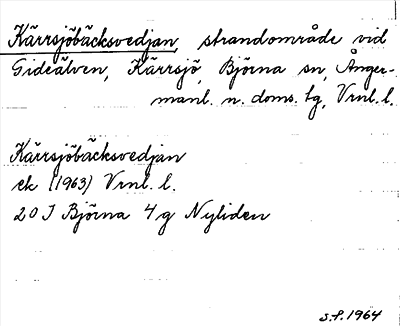 Kärrsjöbäcksvedjan, strandområde vid
Gideälven, Kärrsjö, Björna sn, Ånger-
manl. n. doms. tg, Vrnl. l.
Kärrsjöbäcksvedjan
ek (1963) Vrnl. l.
20 J Björna 4 g Nyliden
S.P. 1964